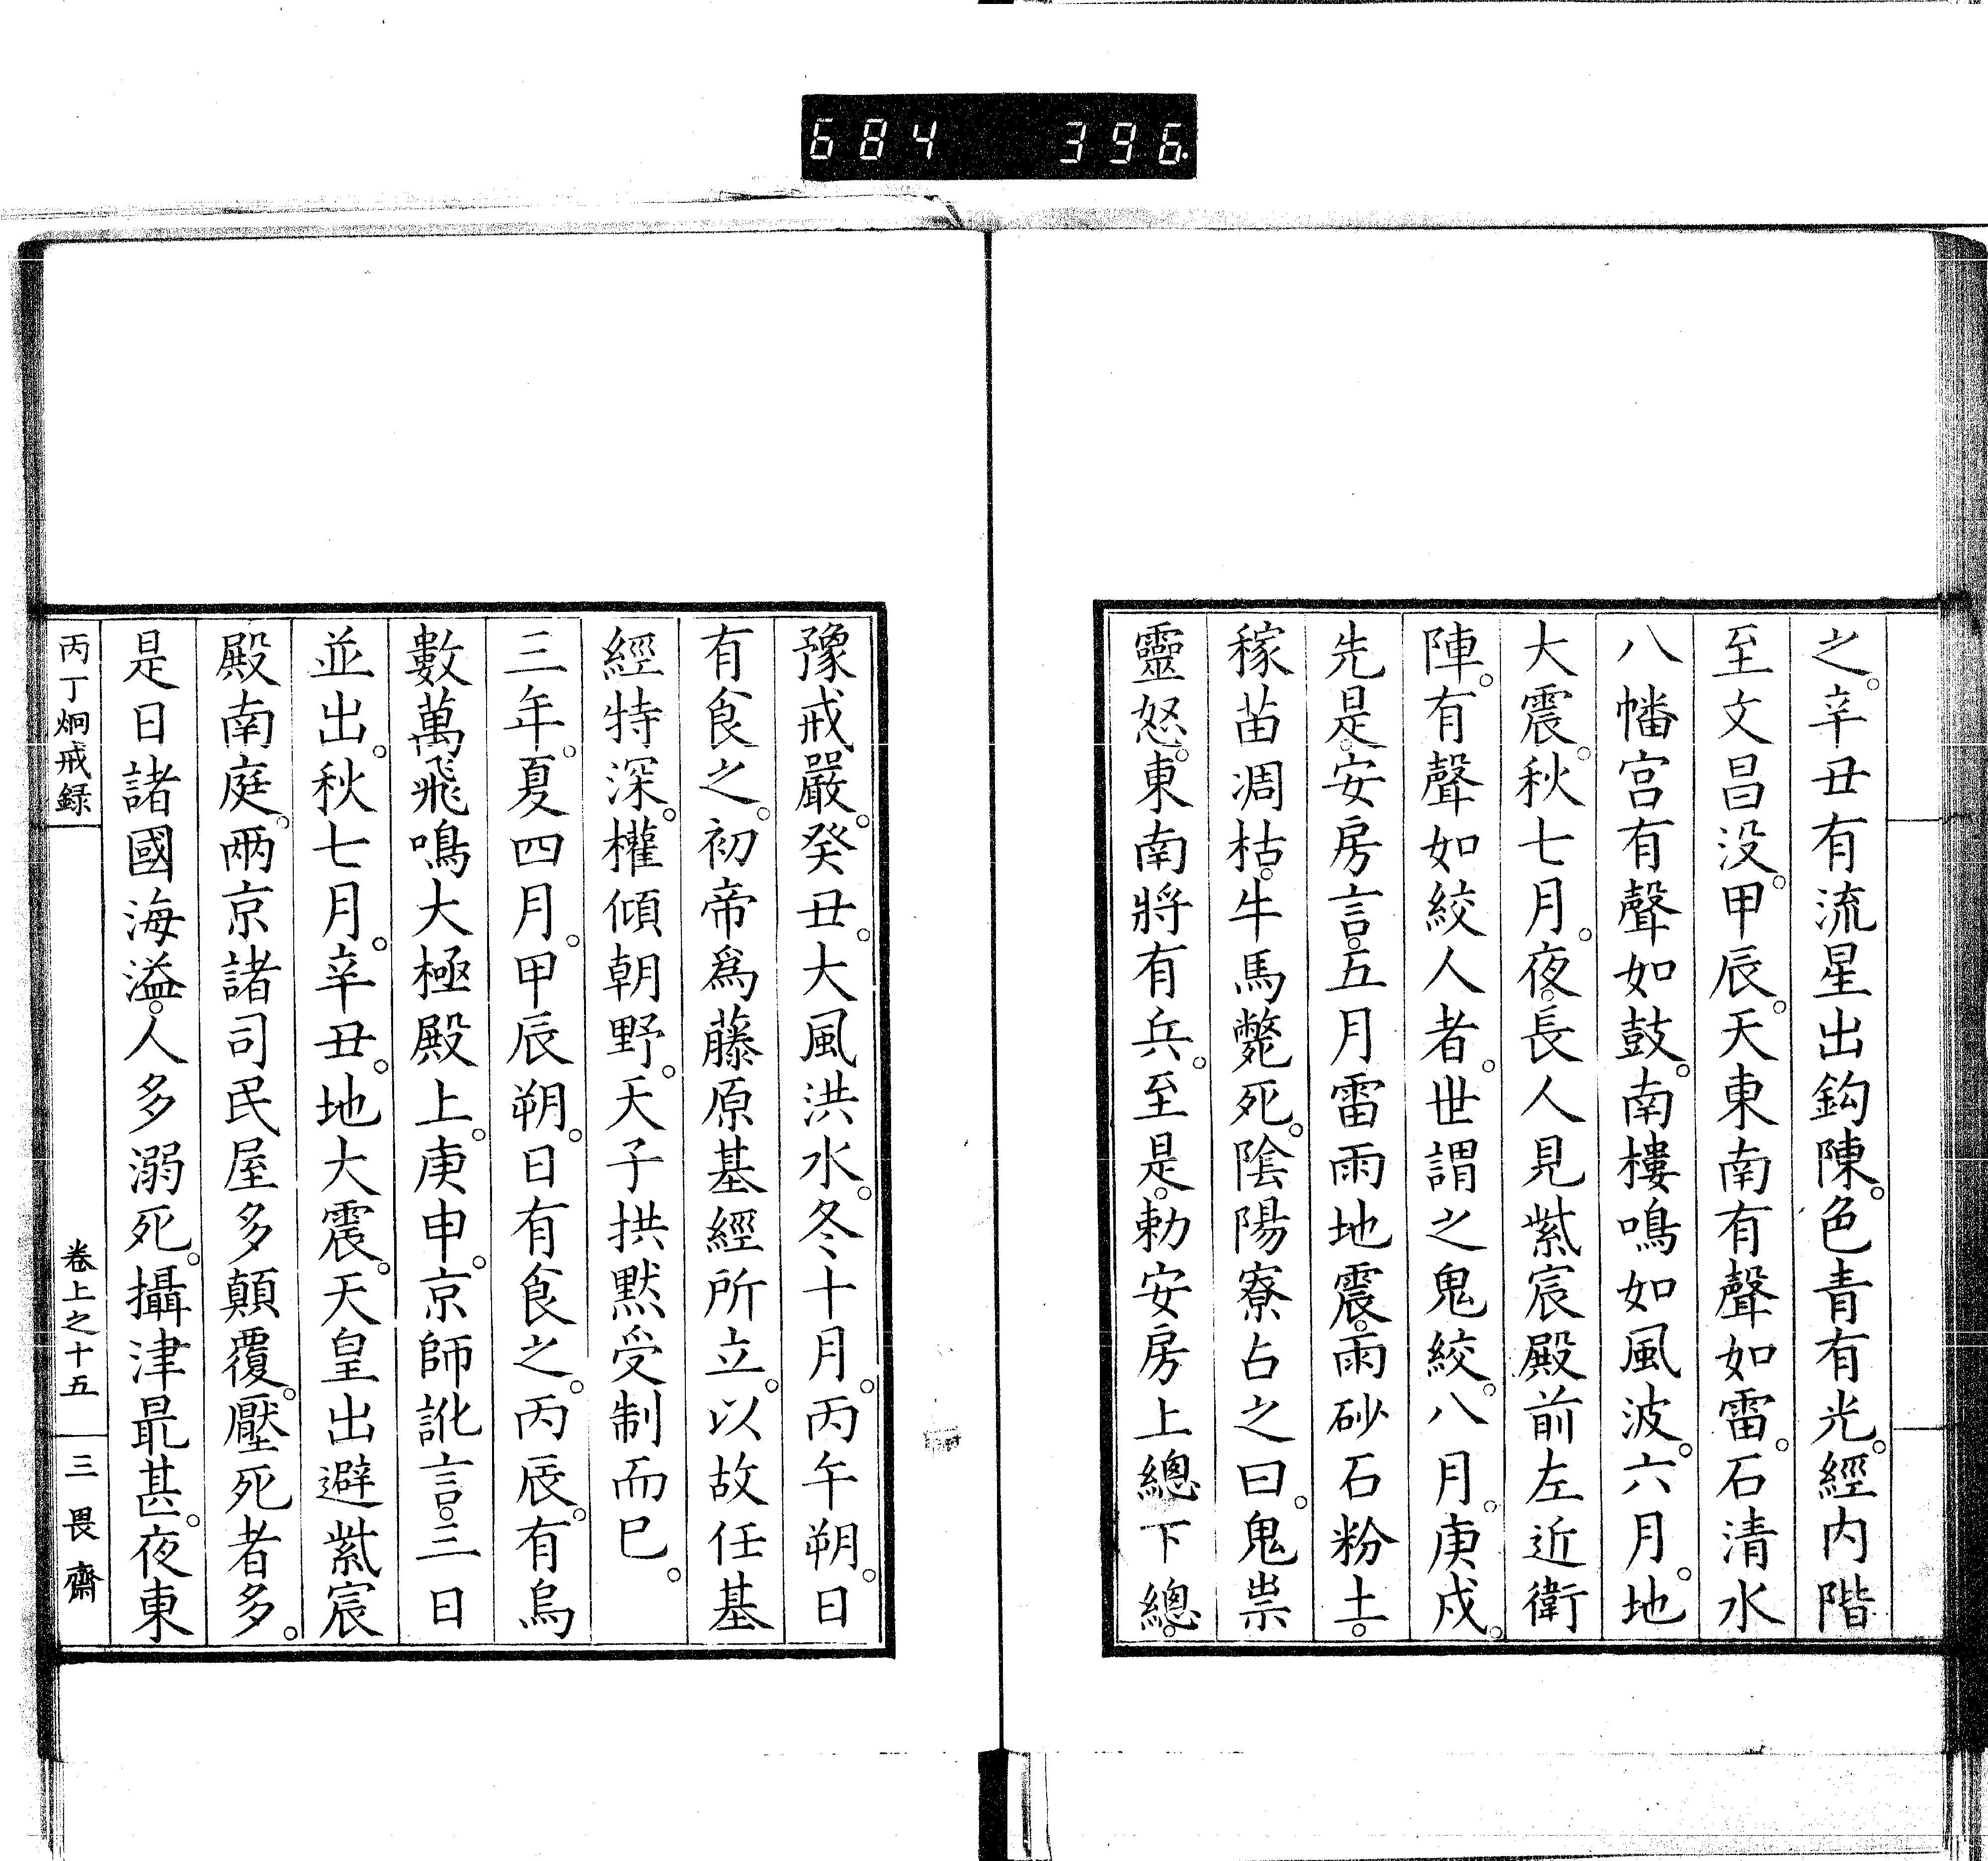 684 396
之。辛丑有流星出鈎陳。色青有光。經内階
至文昌没。甲辰。天東南有聲如雷。石清水
八幡宮有聲如鼓。南樓鳴如風波。六月。地
大震。秋七月。夜。長人見紫宸殿前左近衛
陣。有聲如絞人者。世謂之鬼絞。八月。庚戌。
先是。安房言。五月雷雨地震。雨砂石粉土。
稼苗凋枯。牛馬斃死。陰陽寮占之曰。鬼祟
靈怒。東南將有兵。至是。勅安房上總下總。
豫戒嚴。癸丑。大風洪水。冬十月。丙午朔。日
有食之。初帝爲藤原基經所立。以故任基
經特深。權傾朝野。天子拱默受制而已。
三年。夏四月。甲辰朔。日有食之。丙辰。有烏
數萬飛鳴大極殿上。庚申。京師訛言。三日
並出。秋七月。辛丑。地大震。天皇出避紫宸
殿南庭。兩京諸司民屋多顛覆。壓死者多。
是日諸國海溢。人多溺死。攝津最甚。夜東
丙丁炯戒録 卷上之十五 三畏齋